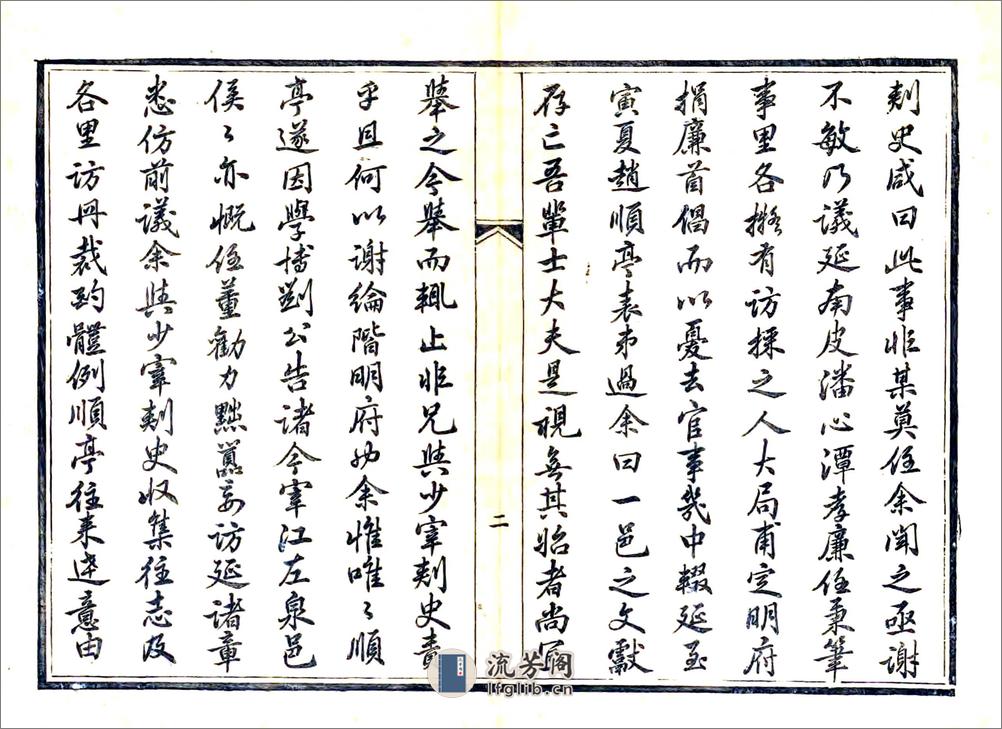 剡史咸曰此事非某莫任余聞之亟謝
不敏乃議延南皮潘心潭孝廉任秉筆
事里各擬有訪採之人大局甫定明府
捐廉首倡而以憂去官事幾中輟延至
寅夏趙順亭表弟過余曰一邑之文獻
存亡吾輩士大夫是視無其始者尚冥
舉之今舉而輒止非兄與少宰剡史責
乎且何以謝綸階明府也余惟唯〻順
亭遂因學博劉公告諸今宰江左泉邑
侯〻亦慨任董勸力黜囂妄訪延諸章
悉仿前議余與少宰剡史收集往志及
各里訪冊裁酌體例順亭往來達意由
二
流芳阁
lfglib.cn